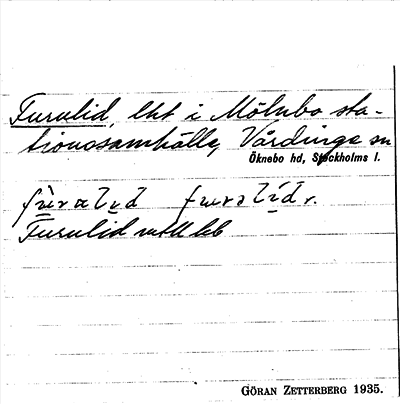 Furulid, lht i Mölnbo sta-
tionssamhälle, Vårdinge sn
Öknebo hd, Stockholms l.
fùralıd furalídr.
Furulid mtlkbl
GÖRAN ZETTERBERG 1935.